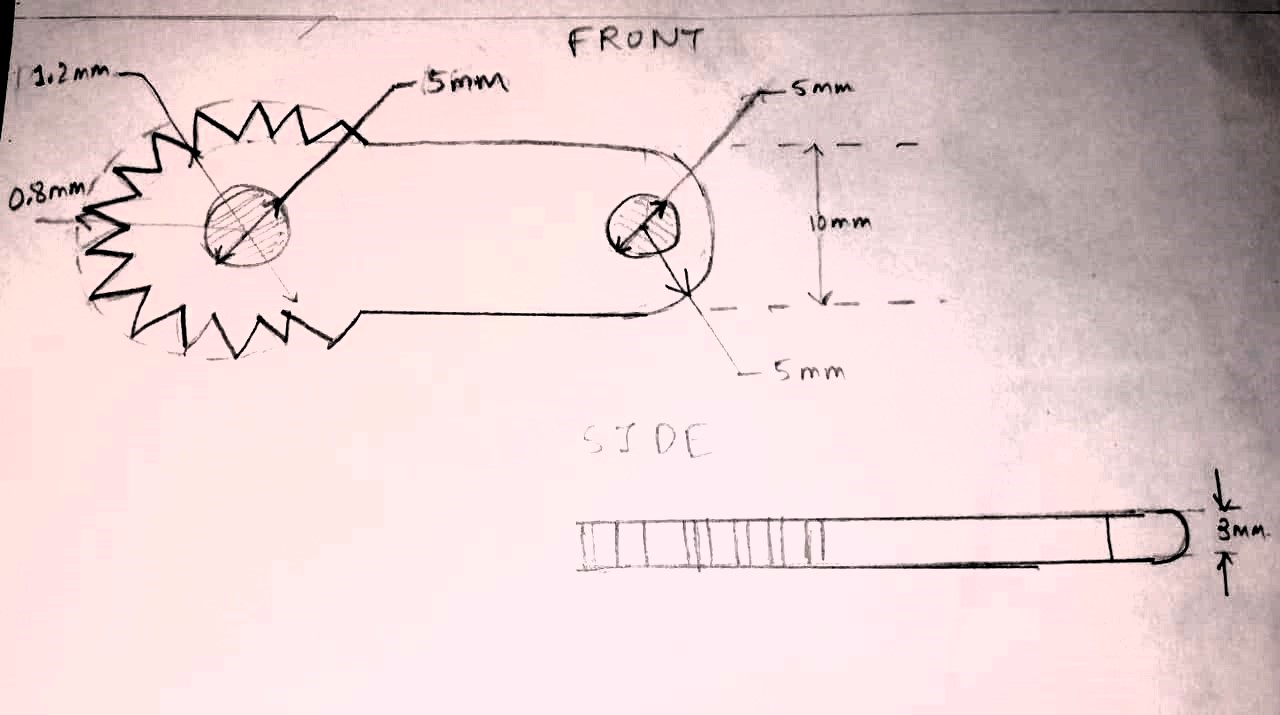 FRONT
1.2mm
5mm
5mm
0.8mm
10mm
5mm
SIDE
3mm